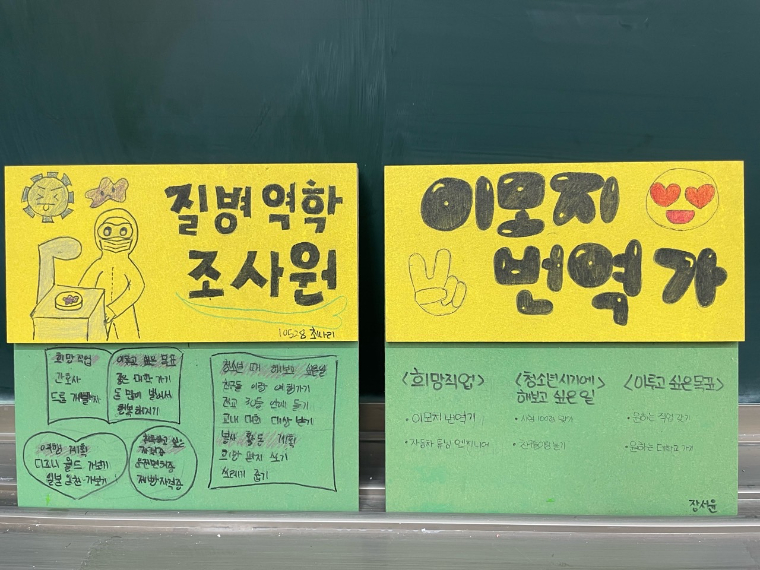 질병 역학
조사원
10528 최사라
희망직업
간호사
드론 개발자
이루고 싶은 목표
좋은 대학 가기
돈 많이 벌어서
행복해지기
여행 계획
디즈니 월드 가보기
일본 온천 가보기
취득하고 싶은
자격증
운전면허증
제빵 자격증
청소년 때 해보고 싶은일
친구들 이랑 여행가기
전교 30등 안에 들기
교내 대회 대상 받기
봉사 활동 계획
위안 편지 쓰기
쓰레기 줍기
이모지
번역가
<희망직업>
• 이모지 번역가
• 자동차 튜닝 엔지니어
<청소년시기에
해보고 싶은 일>
• 시험 100점 맞기
<이루고 싶은 목표>
• 원하는 직업 갖기
• 원하는 대학교 가기
장서윤